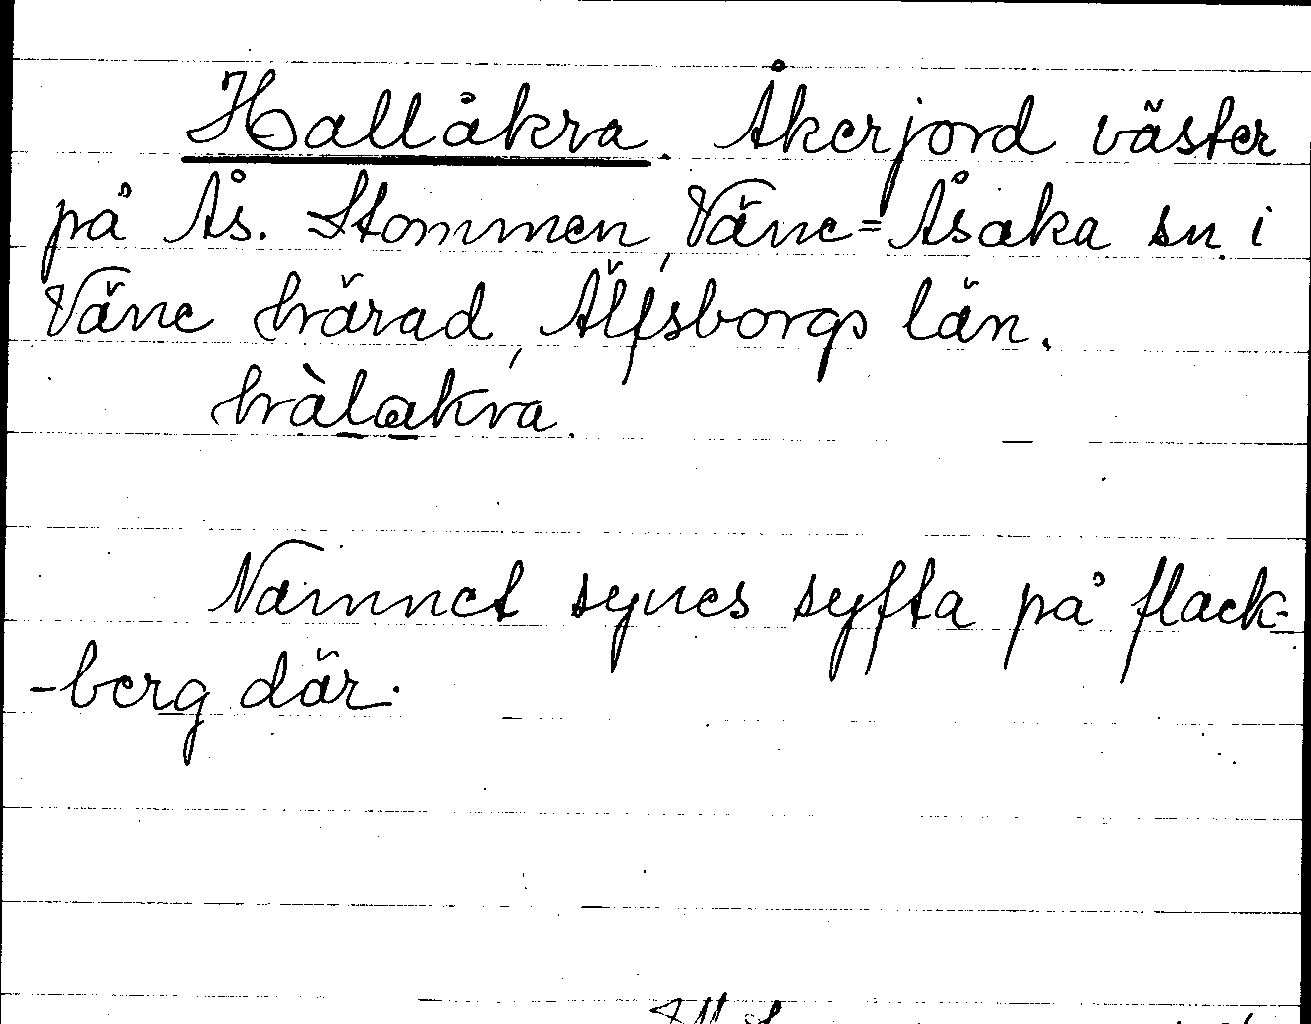 Hallåkra. Åkerjord väster
på Ås. Stommen, Väne=Åsaka sn. i
Väne härad, Älfsborgs län.
hàlakra.
Namnet synes syfta på flack-
-berg där.